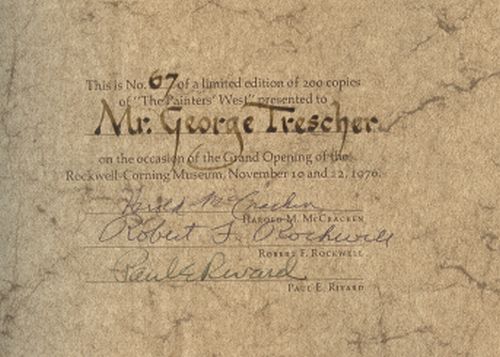 This is No. 67 of a limited edition of 200 copies
of "The Painters' West" presented to
Mr. George Trescher
on the occasion of the Grand Opening of the
Rockwell-Corning Museum, November 19 and 22, 1976.
Harold McCracken
Harold M. McCracken
Robert F. Rockwell
Robert F. Rockwell
Paul E Rivard
Paul E. Rivard